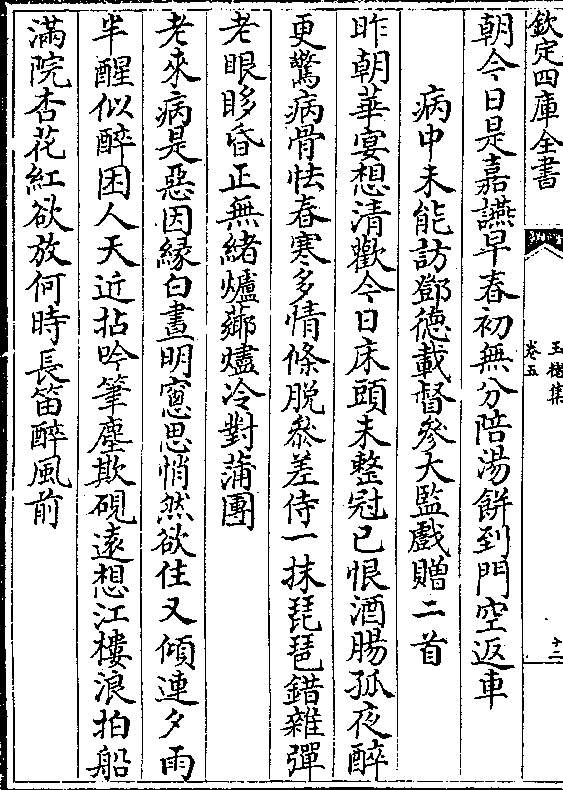 欽定四庫全書
玉楮集
卷五
十二
朝今日是嘉讌早春初無分陪湯餅到門空返車
病中未能訪鄧德載督參大監戲贈二首
昨朝華宴想清歡今日床頭未整冠已恨酒腸孤夜醉
更驚病骨怯春寒多情絛脫參差侍一抹琵琶錯雜彈
老眼眵昏正無緒爐薌燼冷對蒲團
老來病是惡因縁白晝明窻思悄然欲住又傾連夕雨
半醒似醉困人天近拈吟筆塵欺硯遠想江樓浪拍船
滿院杏花紅欲放何時長笛醉風前